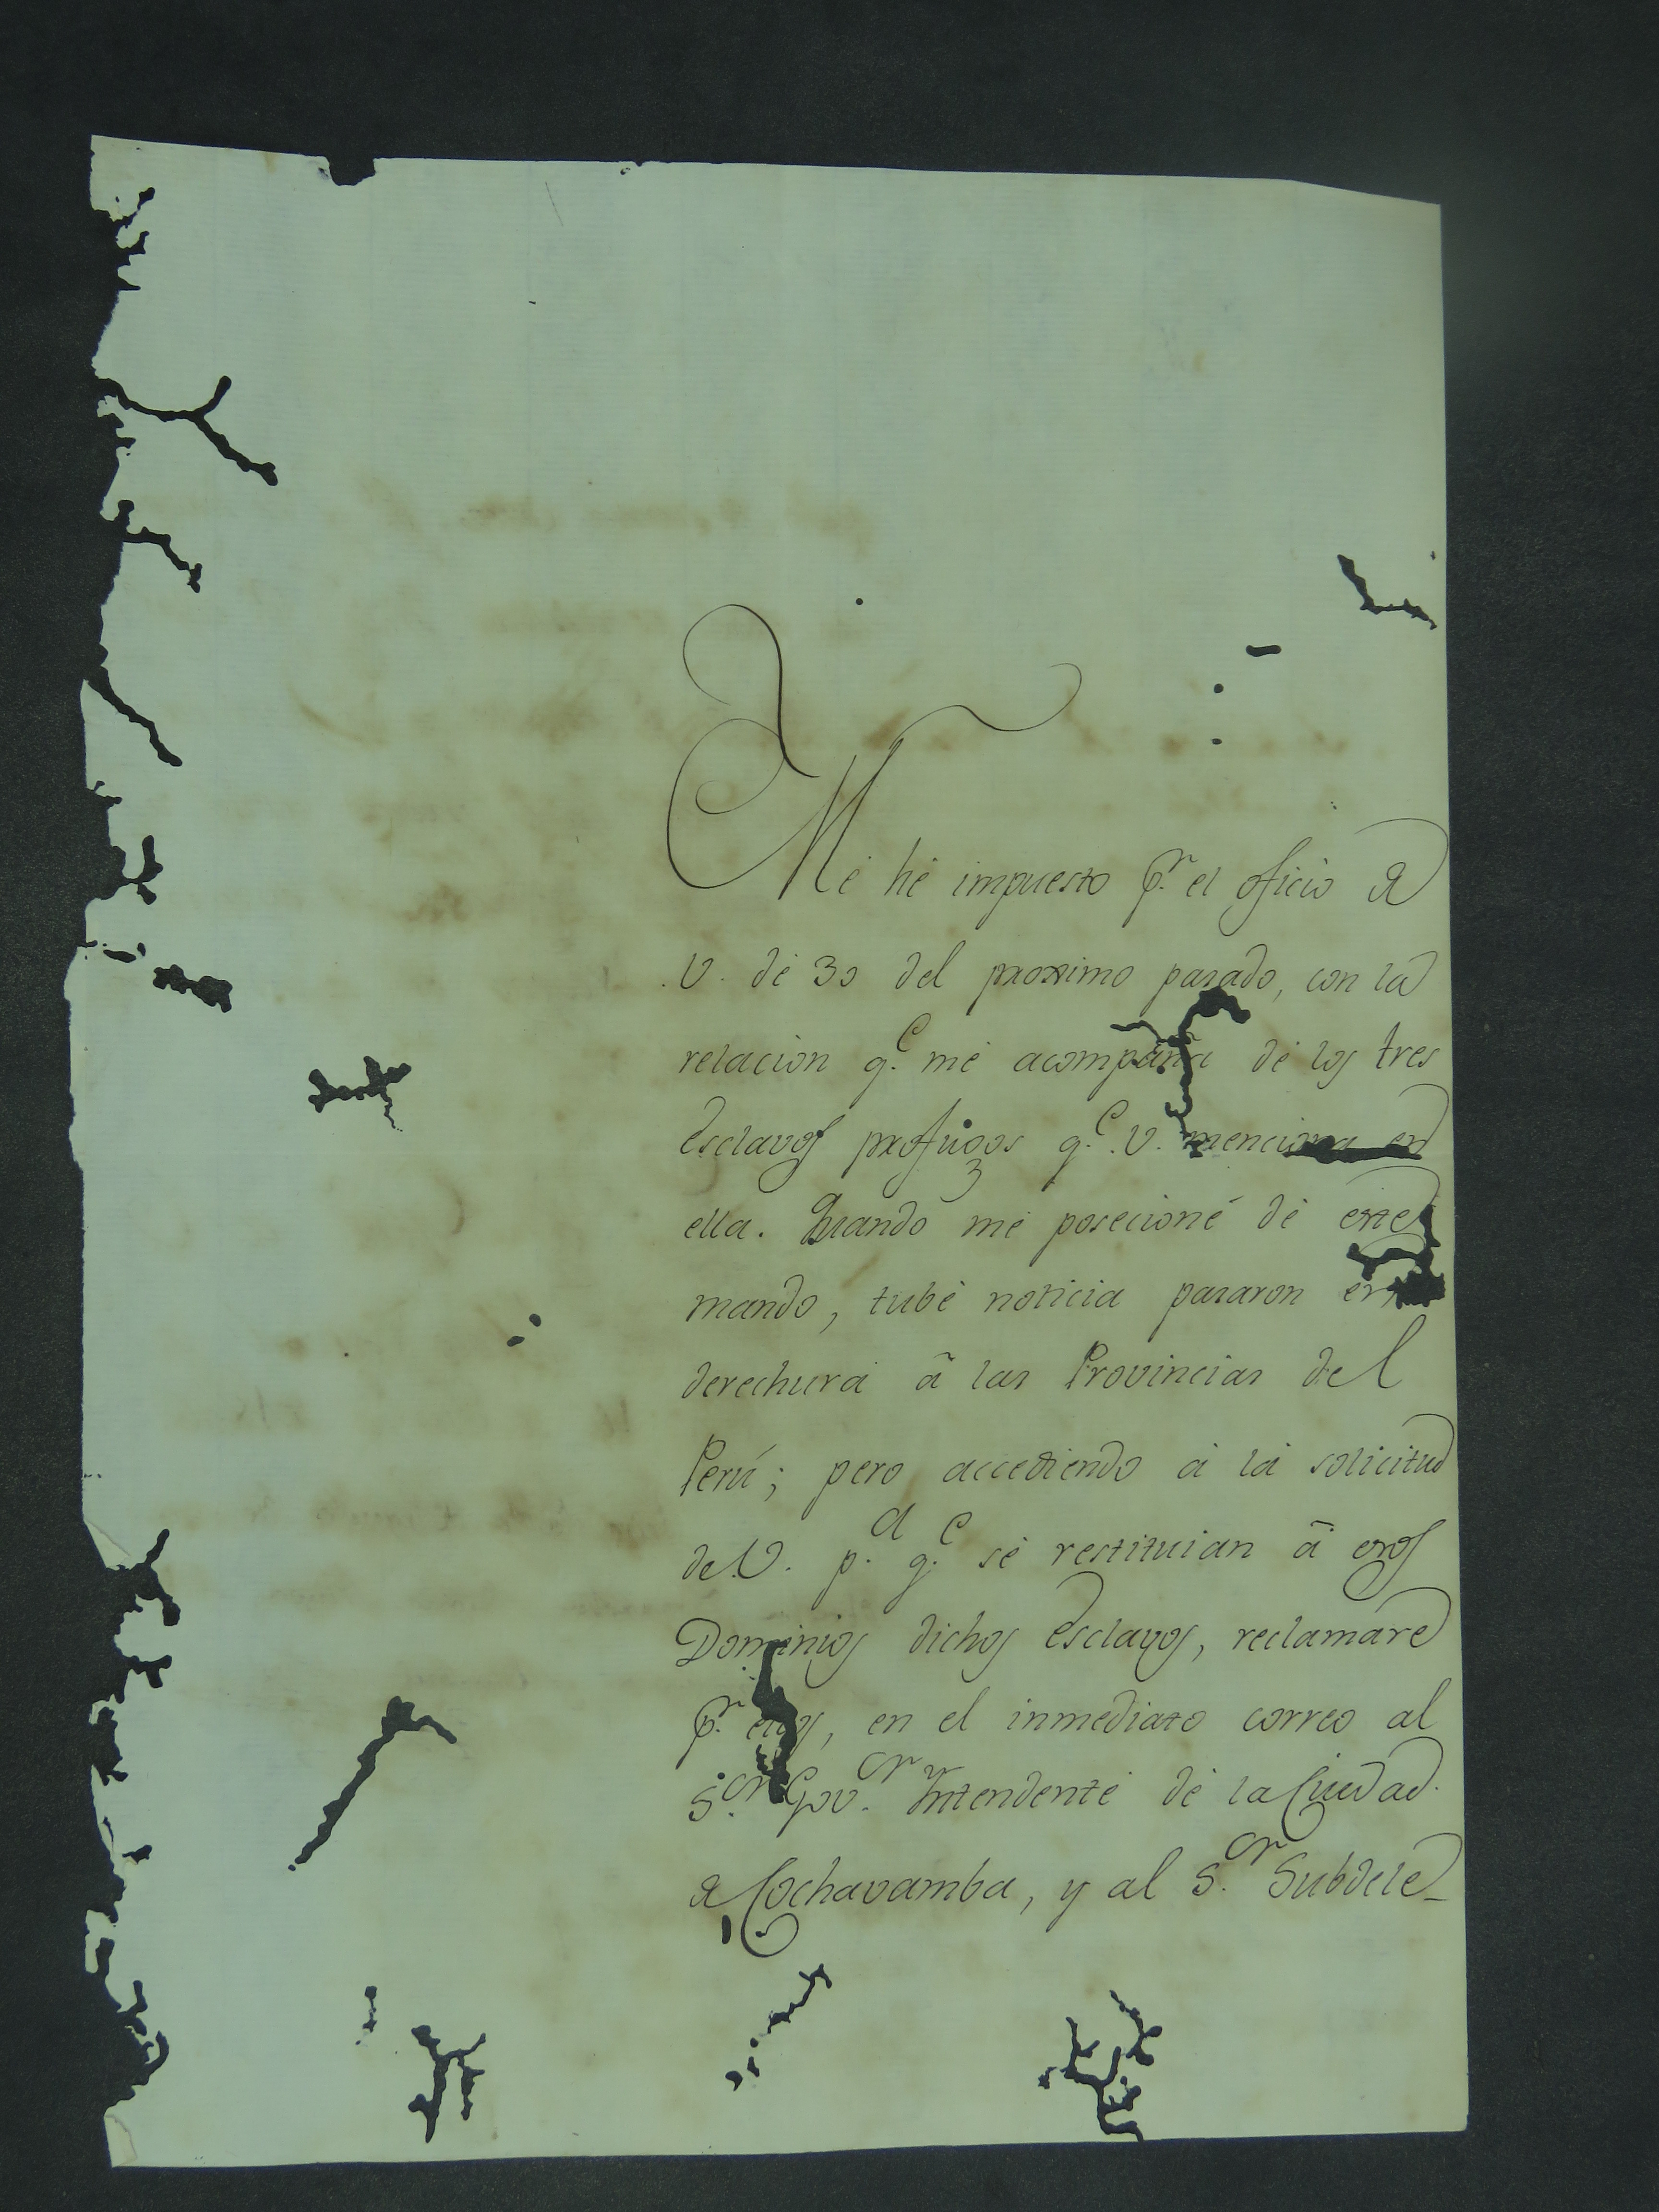 Me hé impuesto p.r el oficio de
V. de 30 del proximo pasado, con la
relacion q.e me acompaña de los tres
Esclavos profugos q.e V. menciona en
ella. Quando me posecioné de este
mando, tube noticia pasaron en
derechura á las Provincias del
Perú; pero accediendo á la solicitud
de V. p.a q.e se restituian á esos
Dominios dichos Esclavos, reclamaré
p.r ellos, en el inmediato correo al
S.or Gov.or Intendente de la Ciudad
de Cochavamba, y al S.or Subdele-